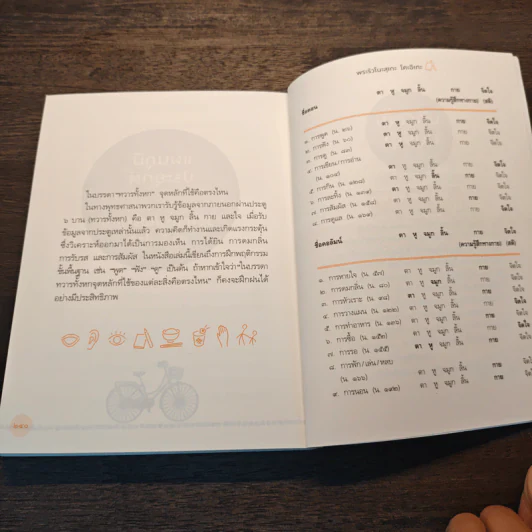 ในบรรดา "ทวารทั้งหก" จุดหลักที่ใช้คือตรงไหน
ในทางพุทธศาสนาพวกเรารับรู้ข้อมูลจากภายนอกผ่านประตู
๖ บาน (ทวารทั้งหก) คือ ตา หู จมูก ลิ้น กาย และใจ เมื่อรับ
ข้อมูลจากประตูเหล่านั้นแล้ว ความคิดก็ทำงานและเกิดแรงกระตุ้น
ซึ่งวิเคราะห์ออกมาได้เป็นการมองเห็น การได้ยิน การดมกลิ่น
การรับรส และการสัมผัส ในหนังสือเล่มนี้เขียนถึงการฝึกพฤติกรรม
ขั้นพื้นฐาน เช่น "พูด" "ฟัง" "ดู" เป็นต้น ถ้าหากเข้าใจว่า "ในบรรดา
ทวารทั้งหกจุดหลักที่ใช้ของแต่ละสิ่งคือตรงไหน" ก็คงจะฝึกฝนได้
อย่างมีประสิทธิภาพ
ตา หู จมูก ลิ้น กาย จิตใจ
(ความรู้สึกทางกาย) (สติ)
ชื่อตอน
๑. การพูด ตา หู จมูก ลิ้น กาย จิตใจ
๒. การฟัง ตา หู จมูก ลิ้น กาย จิตใจ
๓. การดู ตา หู จมูก ลิ้น กาย จิตใจ
๔. การเขียน/การอ่าน
ตา หู จมูก ลิ้น กาย จิตใจ
๕. การกิน ตา หู จมูก ลิ้น กาย จิตใจ
๖. การทิ้ง ตา หู จมูก ลิ้น กาย จิตใจ
๗. การสัมผัส ตา หู จมูก ลิ้น กาย จิตใจ
๘. การดูแล ตา หู จมูก ลิ้น กาย จิตใจ
ตา หู จมูก ลิ้น กาย จิตใจ
ชื่อคอลัมน์ (ความรู้สึกทางกาย) (สติ)
๑. การหายใจ ตา หู จมูก ลิ้น กาย จิตใจ
๒. การดมกลิ่น (น. ๔๐) ตา หู จมูก ลิ้น กาย จิตใจ
๓. การหัวเราะ ตา หู จมูก ลิ้น กาย จิตใจ
๔. การวางแผน ตา หู จมูก ลิ้น กาย จิตใจ
๕. การทำอาหาร ตา หู จมูก ลิ้น กาย จิตใจ
๖. การซื้อ ตา หู จมูก ลิ้น กาย จิตใจ
๗. การรอ ตา หู จมูก ลิ้น กาย จิตใจ
๘. การพัก/เล่น/หลบ
ตา หู จมูก ลิ้น กาย จิตใจ
๙. การนอน ตา หู จมูก ลิ้น กาย จิตใจ